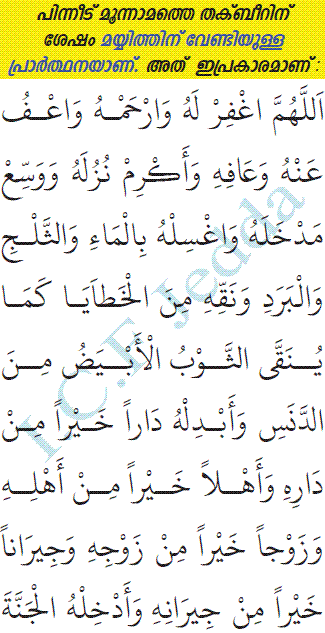 പിന്നീട് മൂന്നാമത്തെ തക്ബീറിന്
ശേഷം മയ്യിത്തിന് വേണ്ടിയുള്ള
പ്രാര്‍ത്ഥനയാണ്. അത് ഇപ്രകാരമാണ് :
اَللَّهُمَّ اغْفِرْ لَهُ وَارْحَمْهُ وَاعْفُ
عَنْهُ وَعَافِهِ وَأَكْرِمْ نُزُلَهُ وَوَسِّعْ
مَدْخَلَهُ وَاغْسِلْهُ بِالْمَاءِ وَالثَّلْجِ
وَالْبَرَدِ وَنَقِّهِ مِنَ الْخَطاَيَا كَمَا
يُنَقَّى الثَّوْبُ الْأَبْيَضُ مِنَ
الدَّنَسِ وَأَبْدِلْهُ دَاراً خَيْراً مِنْ
دَارِهِ وَأَهْلاً خَيْراً مِنْ أَهْلِهِ
وَزَوْجاً خَيْراً مِنْ زَوْجِهِ وَجِيرَاناً
خَيْراً مِنْ جِيرَانِهِ وَأَدْخِلْهُ الْجَنَّةَ
I.C.F Jedda